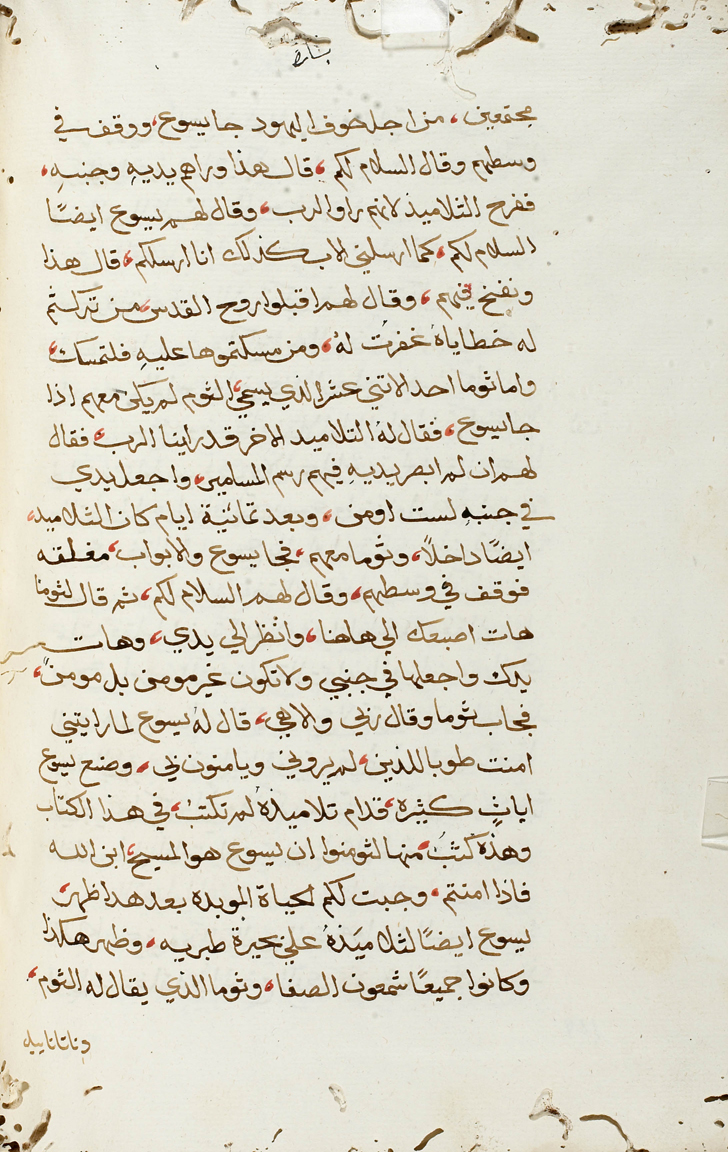 بشارة
مجتمعين، من اجل خوف اليهود جا يسوع، ووقف في
وسطهم وقال السلام لكم، قال هذا وراهم يديهِ وجنبهِ،
ففرح التلاميذ لانهم راوا الرب، وقال لهم يسوع ايضًا
السلام لكم، كما ارسلني الاب كذلك انا ارسلكم، قال هذا
ونفخ فيهم، وقال لهم اقبلوا روح القدس، من تركتم
له خطاياهُ غفرت لهُ، ومن مسكتموها عليهِ فلتمسك،
واما توما احد الاثني عشر الذي يسمي، التوم لم يكن معهم اذا
جا يسوع، فقال لهُ التلاميد الاخر قد راينا الرب، فقال
لهم ان لم ابصر يديهِ فيهم رسم المسامير، واجعل يدي
في جنبهِ لست اومن، وبعد ثمانية ايام كان التلاميد،
ايضًا داخلًا، وتوما معهم، فجا يسوع والابواب، مغلقه
فوقف في وسطهم، وقال لهم السلام لكم، ثم قال لتوما
هات اصبعك الي هاهنا، وانظر الي يدي، وهات
يدك واجعلها في جنبي ولا تكون غير مومن بل مومن،
فجاب توما وقال ربي والاهي، قال لهُ يسوع لما رايتني
امنت طوبا للذين، لم يروني ويامنون بي، وصنع يسوع
اياتٍ كثيرة، قدام تلاميذهُ لم تكتب، في هذا الكتاب
وهذه كتبُ، منها لتومنوا ان يسوع هو المسيح، ابن الله
فاذا امنتم، وجبت لكم الحياة الموبده بعد هدا ظهر،
يسوع ايضًا لتلاميَذهُ علي بحيرة طبريه، وظهر هكذا
وكانوا جميعًا شمعون الصفا، وتوما الذي يقال له التوم،
وناتاناييل